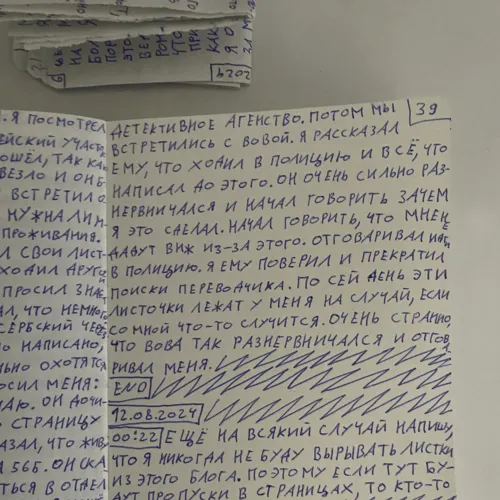 . Я ПОСМОТРЕЛ
ЕЙСКИЙ УЧАСТ
ОШЁЛ, ТАК КА
ВЕЗЛО И ОН Б
ВСТРЕТИЛ О
НУЖНА ЛИ
ПРОЖИВАНИЯ.
Л СВОИ ЛИСТ
ХОДИЛ ДРУГО
ПРОСИЛ ЗНА
АЛ, ЧТО НЕМНОГ
СЕРБСКИЙ ЧЕРЕ
О НАПИСАНО,
ЛЬНО ОХОТЯТСЯ
ОСИЛ МЕНЯ:
АЮ. ОН ДОЧИ
Ь СТРАНИЦУ
АЗАЛ, ЧТО ЖИВ
Я 56Б. ОН СКА
ТЬСЯ В ОТДЕЛ
39
ДЕТЕКТИВНОЕ АГЕНСТВО. ПОТОМ МЫ
ВСТРЕТИЛИСЬ С ВОВОЙ. Я РАССКАЗАЛ
ЕМУ, ЧТО ХОДИЛ В ПОЛИЦИЮ И ВСЁ, ЧТО
НАПИСАЛ ДО ЭТОГО. ОН ОЧЕНЬ СИЛЬНО РАЗ-
НЕРВНИЧАЛСЯ И НАЧАЛ ГОВОРИТЬ ЗАЧЕМ
Я ЭТО СДЕЛАЛ. НАЧАЛ ГОВОРИТЬ, ЧТО МНЕ НЕ
ДАДУТ ВНЖ ИЗ-ЗА ЭТОГО. ОТГОВАРИВАЛ ИДТИ
В ПОЛИЦИЮ. Я ЕМУ ПОВЕРИЛ И ПРЕКРАТИЛ
ПОИСКИ ПЕРЕВОДЧИКА. ПО СЕЙ ДЕНЬ ЭТИ
ЛИСТОЧКИ ЛЕЖАТ У МЕНЯ НА СЛУЧАЙ, ЕСЛИ
СО МНОЙ ЧТО-ТО СЛУЧИТСЯ. ОЧЕНЬ СТРАННО,
ЧТО ВОВА ТАК РАЗНЕРВНИЧАЛСЯ И ОТГОВА
РИВАЛ МЕНЯ.
END
12.08.2024
00:22 ЕЩЁ НА ВСЯКИЙ СЛУЧАЙ НАПИШУ,
ЧТО Я НИКОГДА НЕ БУДУ ВЫРЫВАТЬ ЛИСТКИ
ИЗ ЭТОГО БЛОГА. ПОЭТОМУ ЕСЛИ ТУТ БУ-
ДУТ ПРОПУСКИ В СТРАНИЦАХ, ТО КТО-ТО